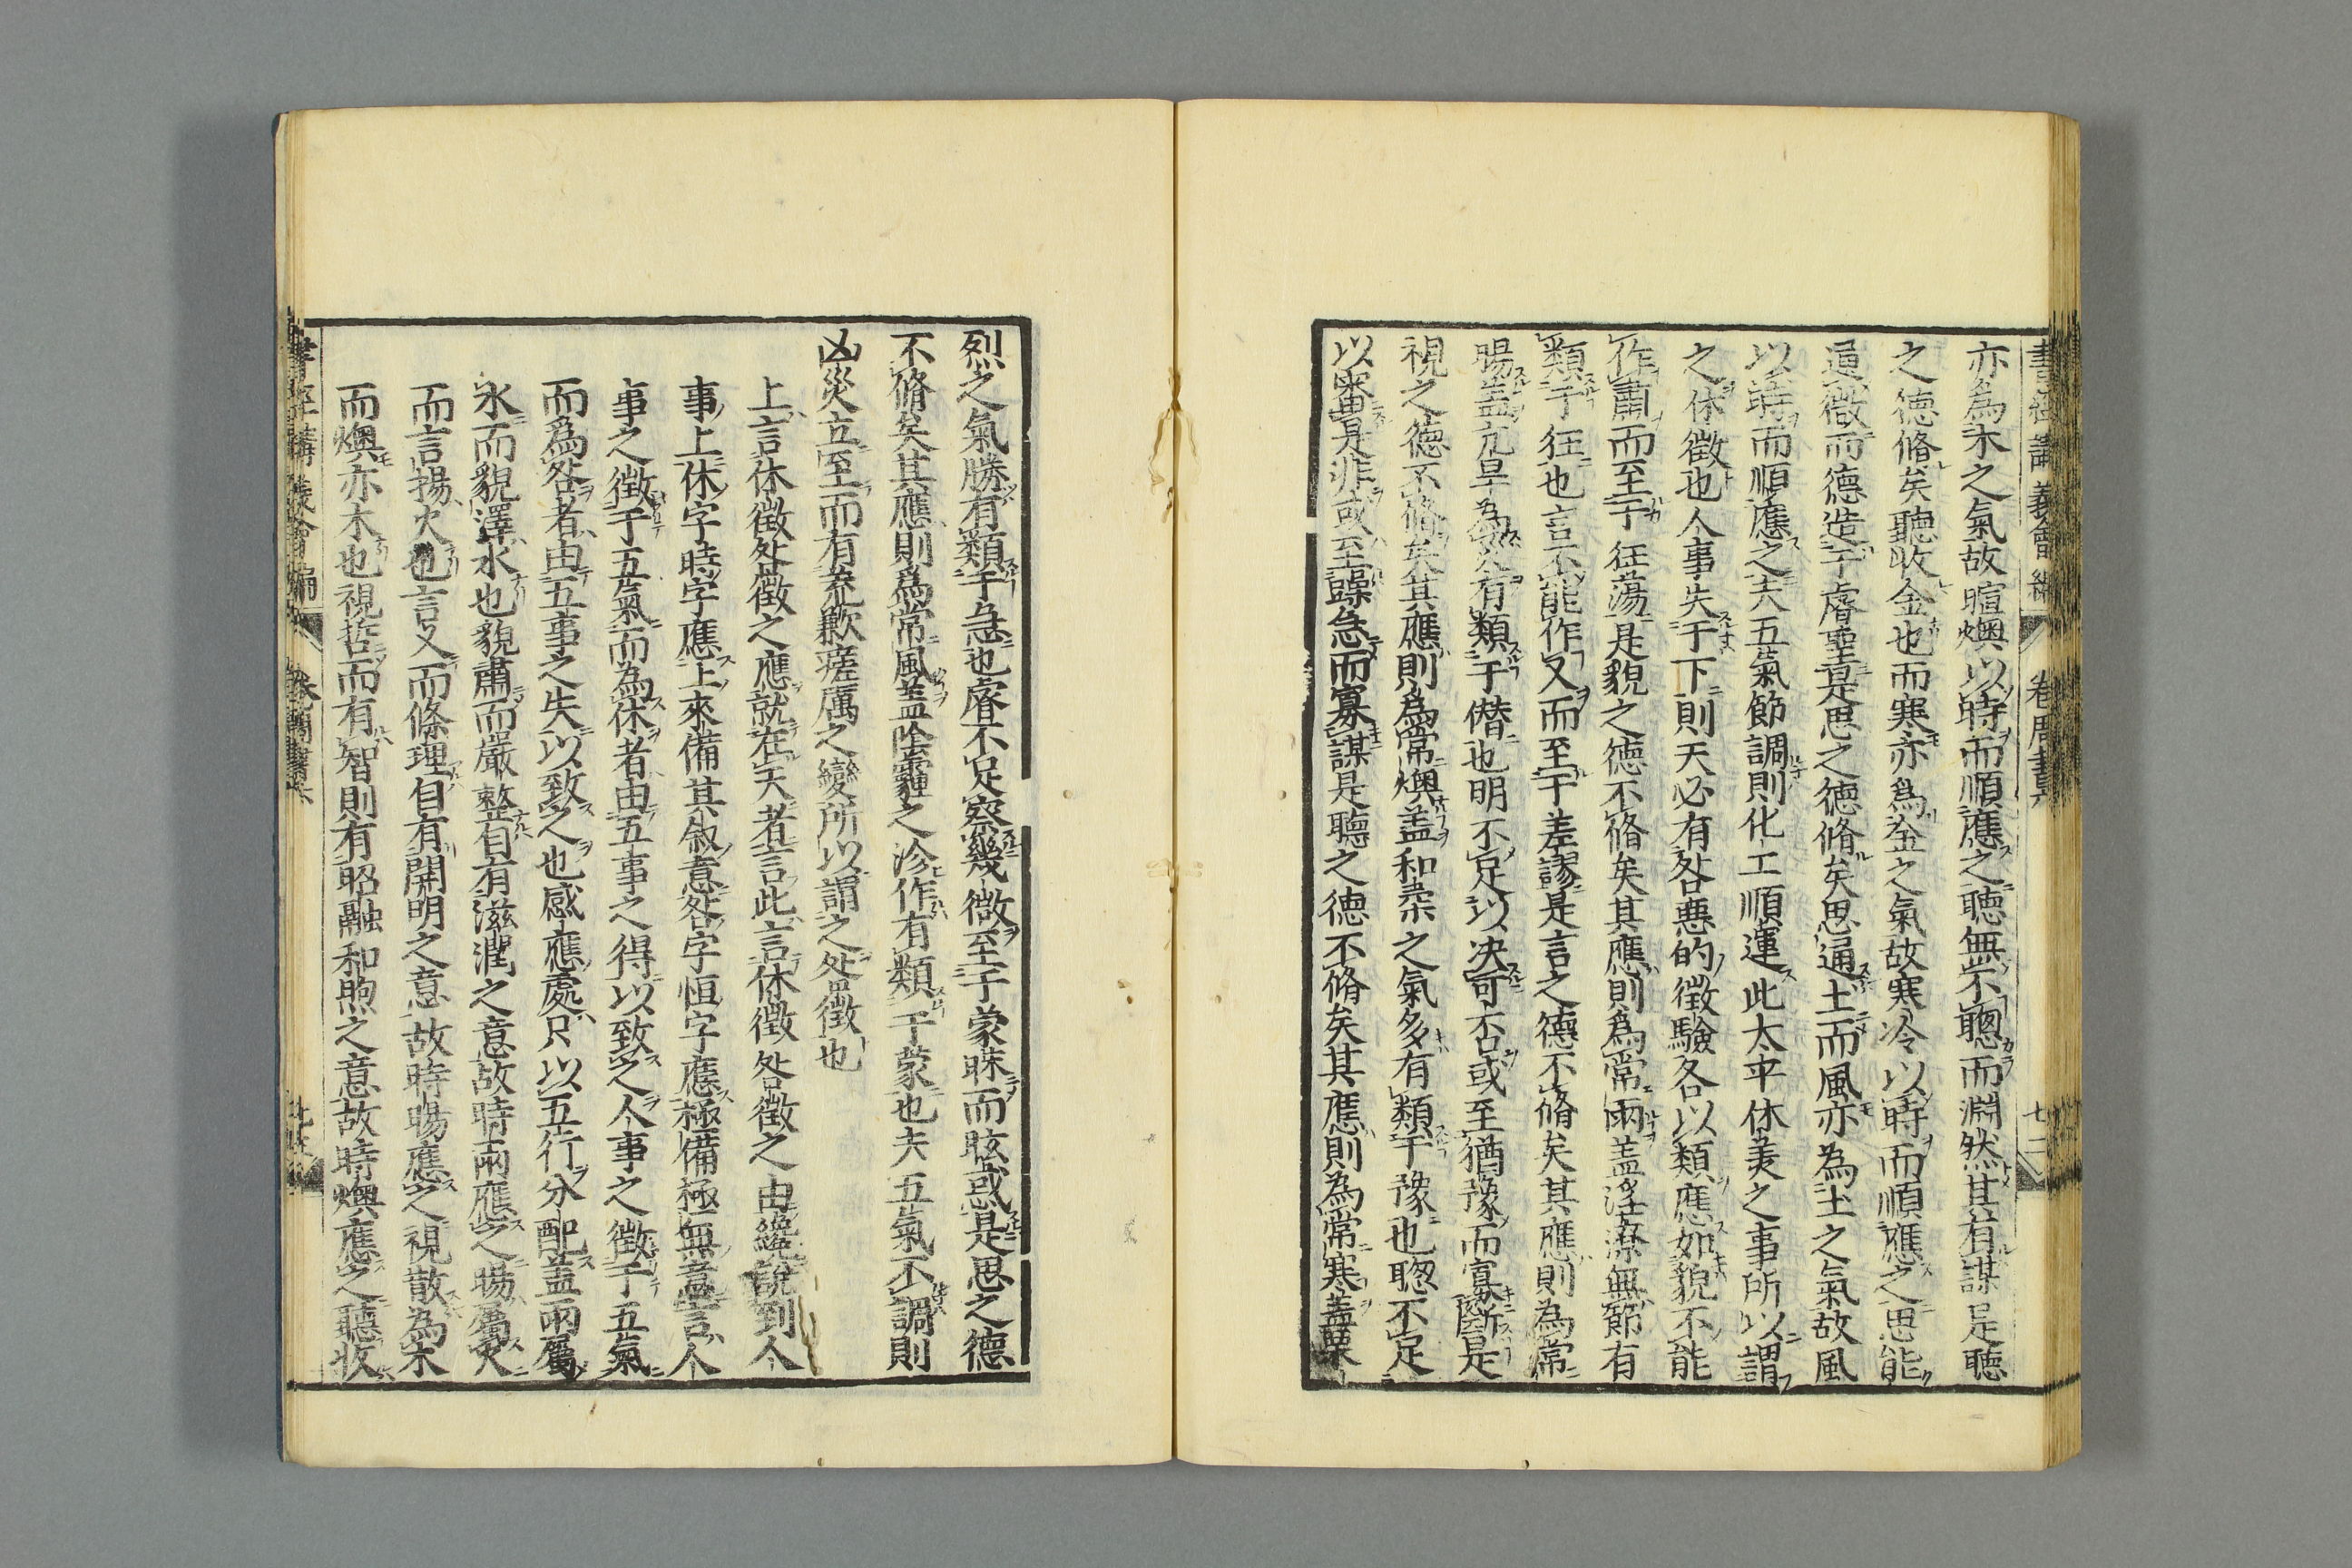 書經講義會編 卷 周書 七十二
亦為木之氣故暄燠以時而順應之聽無不聰而淵然其有謀是聽
之德脩矣聽收金也而寒亦為金之氣故寒冷以時而順應之思能
通微而德造于睿聖是思之德脩矣思通土而風亦為土之氣故風
以時而順應之夫五氣節調則化工順運此太平休美之事所以謂
之休徵也人事失于下則天必有咎惡的徵驗各以類應如貌不能
作肅而至于狂蕩是貌之德不脩矣其應則為常雨蓋淫潦無節有
類于狂也言不能作乂而至于差謬是言之德不脩矣其應則為常
暘蓋亢旱為有類于僭也明不足以決可否或至猶豫而寡斷是
視之德不脩矣其應則為常燠蓋和柔之氣多有類于豫也聰不足
以審是非或至躁急而寡謀是聽之德不脩矣其應則為常寒蓋栗
烈之氣勝有類于急也睿不足察幾微至于蒙昧而眩惑是思之德
不脩矣其應則為常風蓋陰霾之沴作有類于蒙也夫五氣不調則
凶災立至而有荒歉瘥厲之變所以謂之咎徵也
上言休徵咎徵之應就在天者言此言休徵咎徵之由纔說到人
事上休字時字應上來備其叙意咎字恒字應極備極無意言人
事之徵于五氣而為休者由五事之得以致之人事之徵于五氣
而為咎者由五事之失以致之也感應處只以五行分配蓋雨屬
水而貌澤水也貌肅而嚴整自有滋潤之意故時雨應之暘屬火
而言揚火也言乂而條理自有開明之意故時暘應之視散為木
而燠亦木也視哲而有智則有昭融和煦之意故時燠應之聽收
書經講義會編 卷 周書